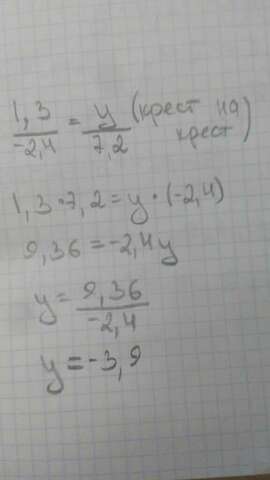 1,3/-2,4 = y/7,2 (крест на крест)
1,3·7,2=y·(-2,4)
9,36=-2,4y
y=9,36/-2,4
y=-3,9